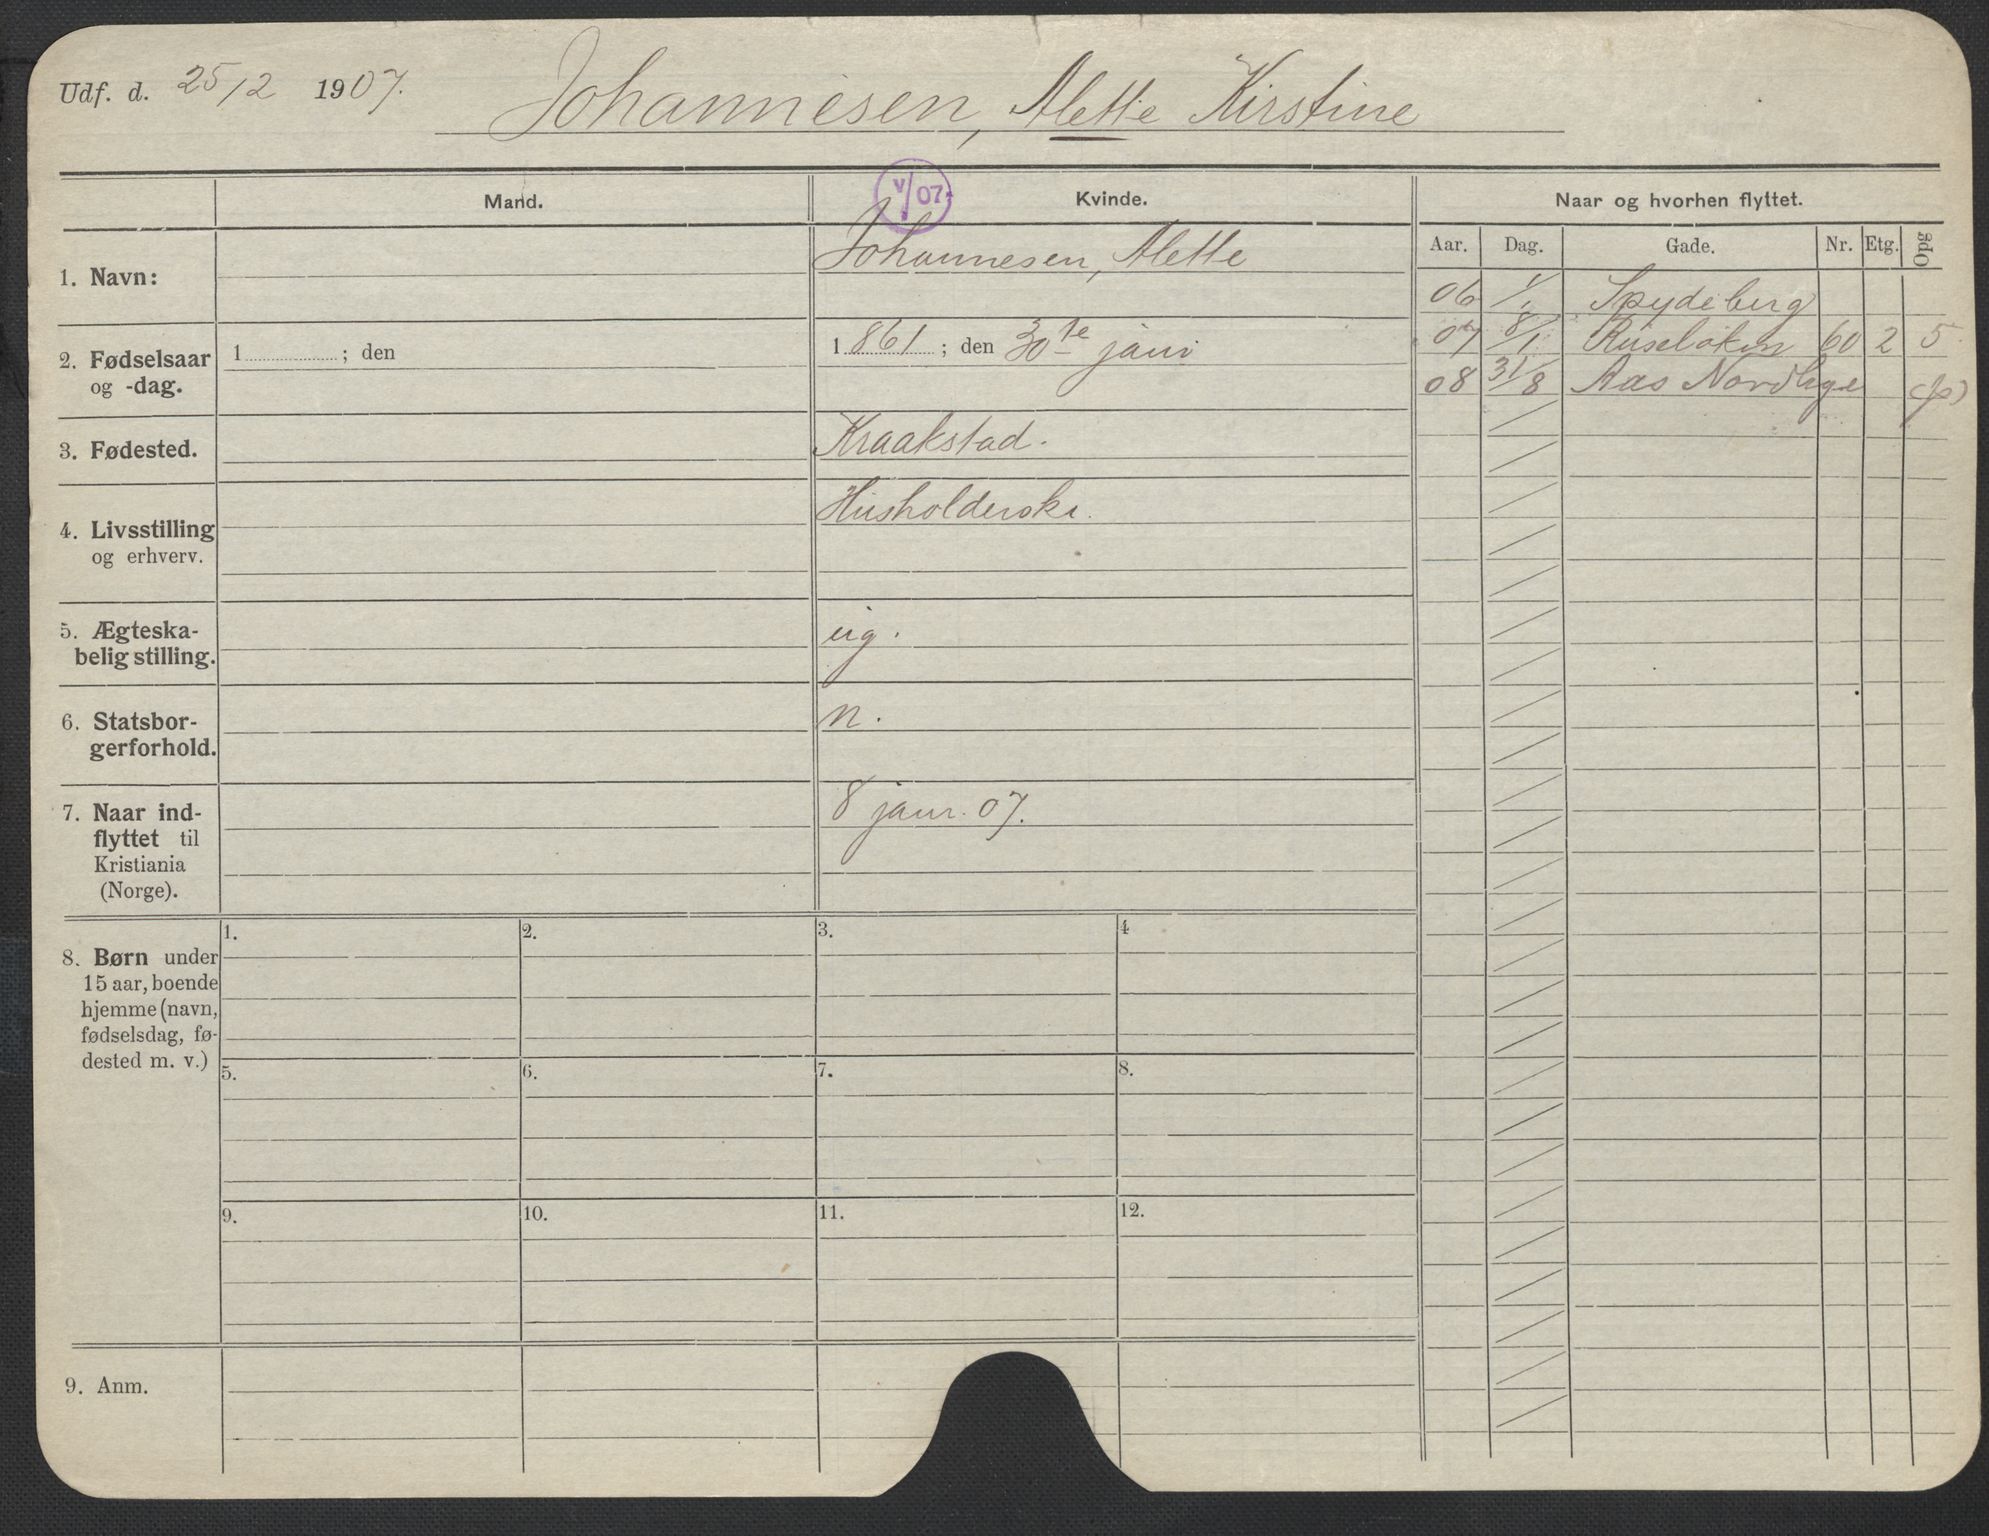 Udf. d. 25/2 1907. Johannesen, Alette Kirstine
Mand. Kvinde. Naar og hvorhen flyttet.
V/07
Aar. Dag. Gade. Nr. Etg. Opg
1. Navn: Johannesen, Alette
06 Spydeberg
2. Fødselsaar 1 ; den 1861 ; den 30te janr
og -dag.
07 8/1 Ruseløkvn 60 2 5
08 31/8 Aas Nordbye
3. Fødested. Kraakstad.
4. Livsstilling Husholderske.
og erhverv.
5. Ægteska- ug.
belig stilling.
6. Statsbor- n.
gerforhold.
7. Naar ind- 8 janr. 07.
flyttet til
Kristiania
(Norge).
8. Børn under 1. 2. 3. 4
15 aar, boende
hjemme (navn,
fødselsdag, fø-
dested m. v.)
5. 6. 7. 8.
9. 10. 11. 12.
9. Anm.